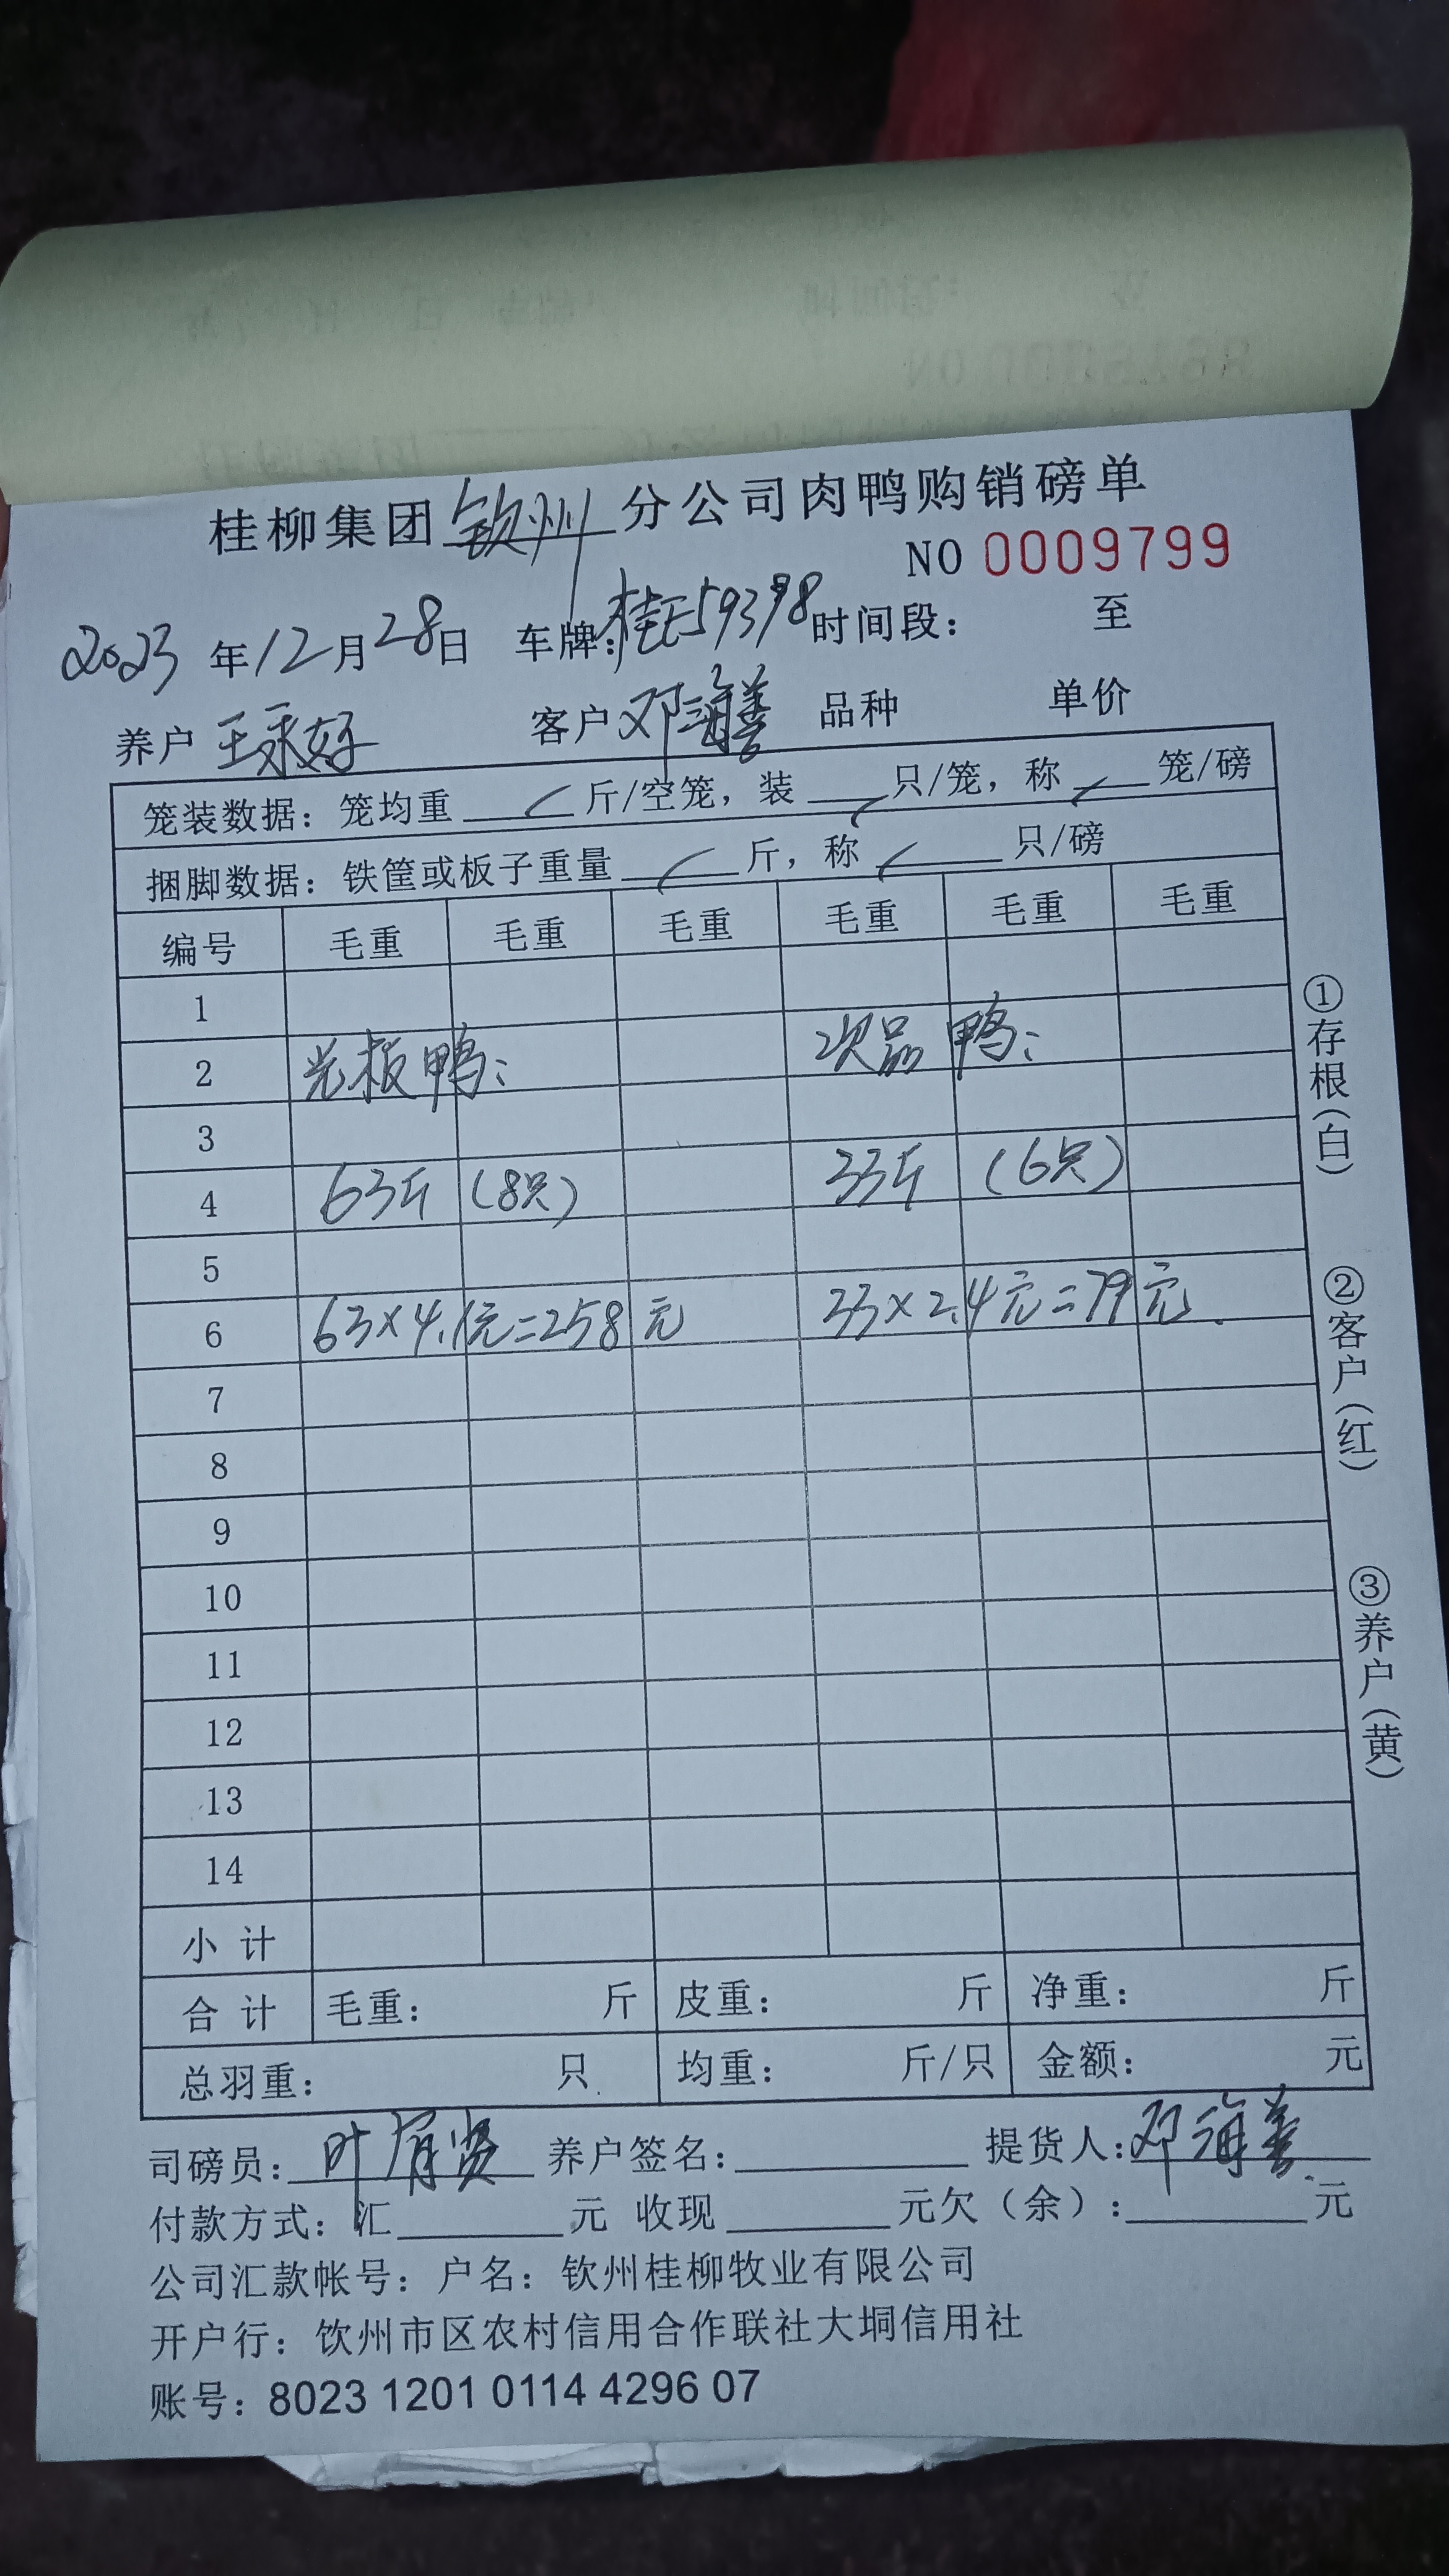 桂柳集团钦州分公司肉鸭购销磅单
NO 0009799
2023年12月28日 车牌:桂E59398时间段: 至
养户 王永好 客户 邓海善 品种 单价
笼装数据: 笼均重 斤/空笼, 装 只/笼, 称 笼/磅
捆脚数据: 铁筐或板子重量 斤, 称 只/磅
编号 毛重 毛重 毛重 毛重 毛重 毛重
1
2 光板鸭: 次品鸭:
3
4 63斤 (8只) 33斤 (6只)
5
6 63×4.1元=258元 33×2.4元=79元.
7
8
9
10
11
12
13
14
小计
合计 毛重: 斤 皮重: 斤 净重: 斤
总羽重: 只 均重: 斤/只 金额: 元
司磅员: 叶 贤 养户签名: 提货人:邓海善
付款方式: 汇 元 收现 元欠(余): 元
公司汇款帐号: 户名: 钦州桂柳牧业有限公司
开户行: 钦州市区农村信用合作联社大垌信用社
账号: 8023 1201 0114 4296 07
①存根(白)
②客户(红)
③养户(黄)